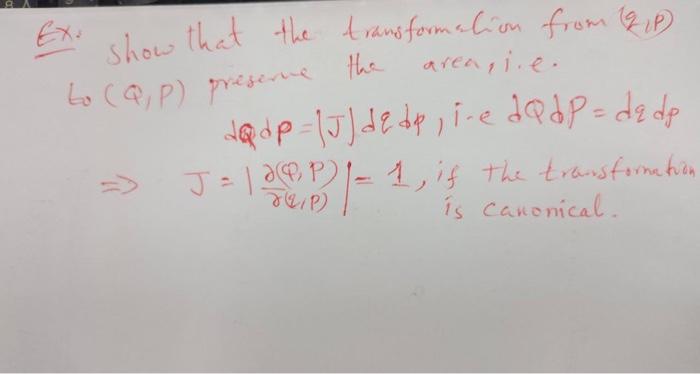 Ex. show that the transformation from (q,p)
to (Q,P) preserve the area, i.e.
dQdp = |J| dq dp, i-e dQdP = dq dp
=> J = |∂(Q,P)/∂(q,p)| = 1, if the transformation
is canonical.